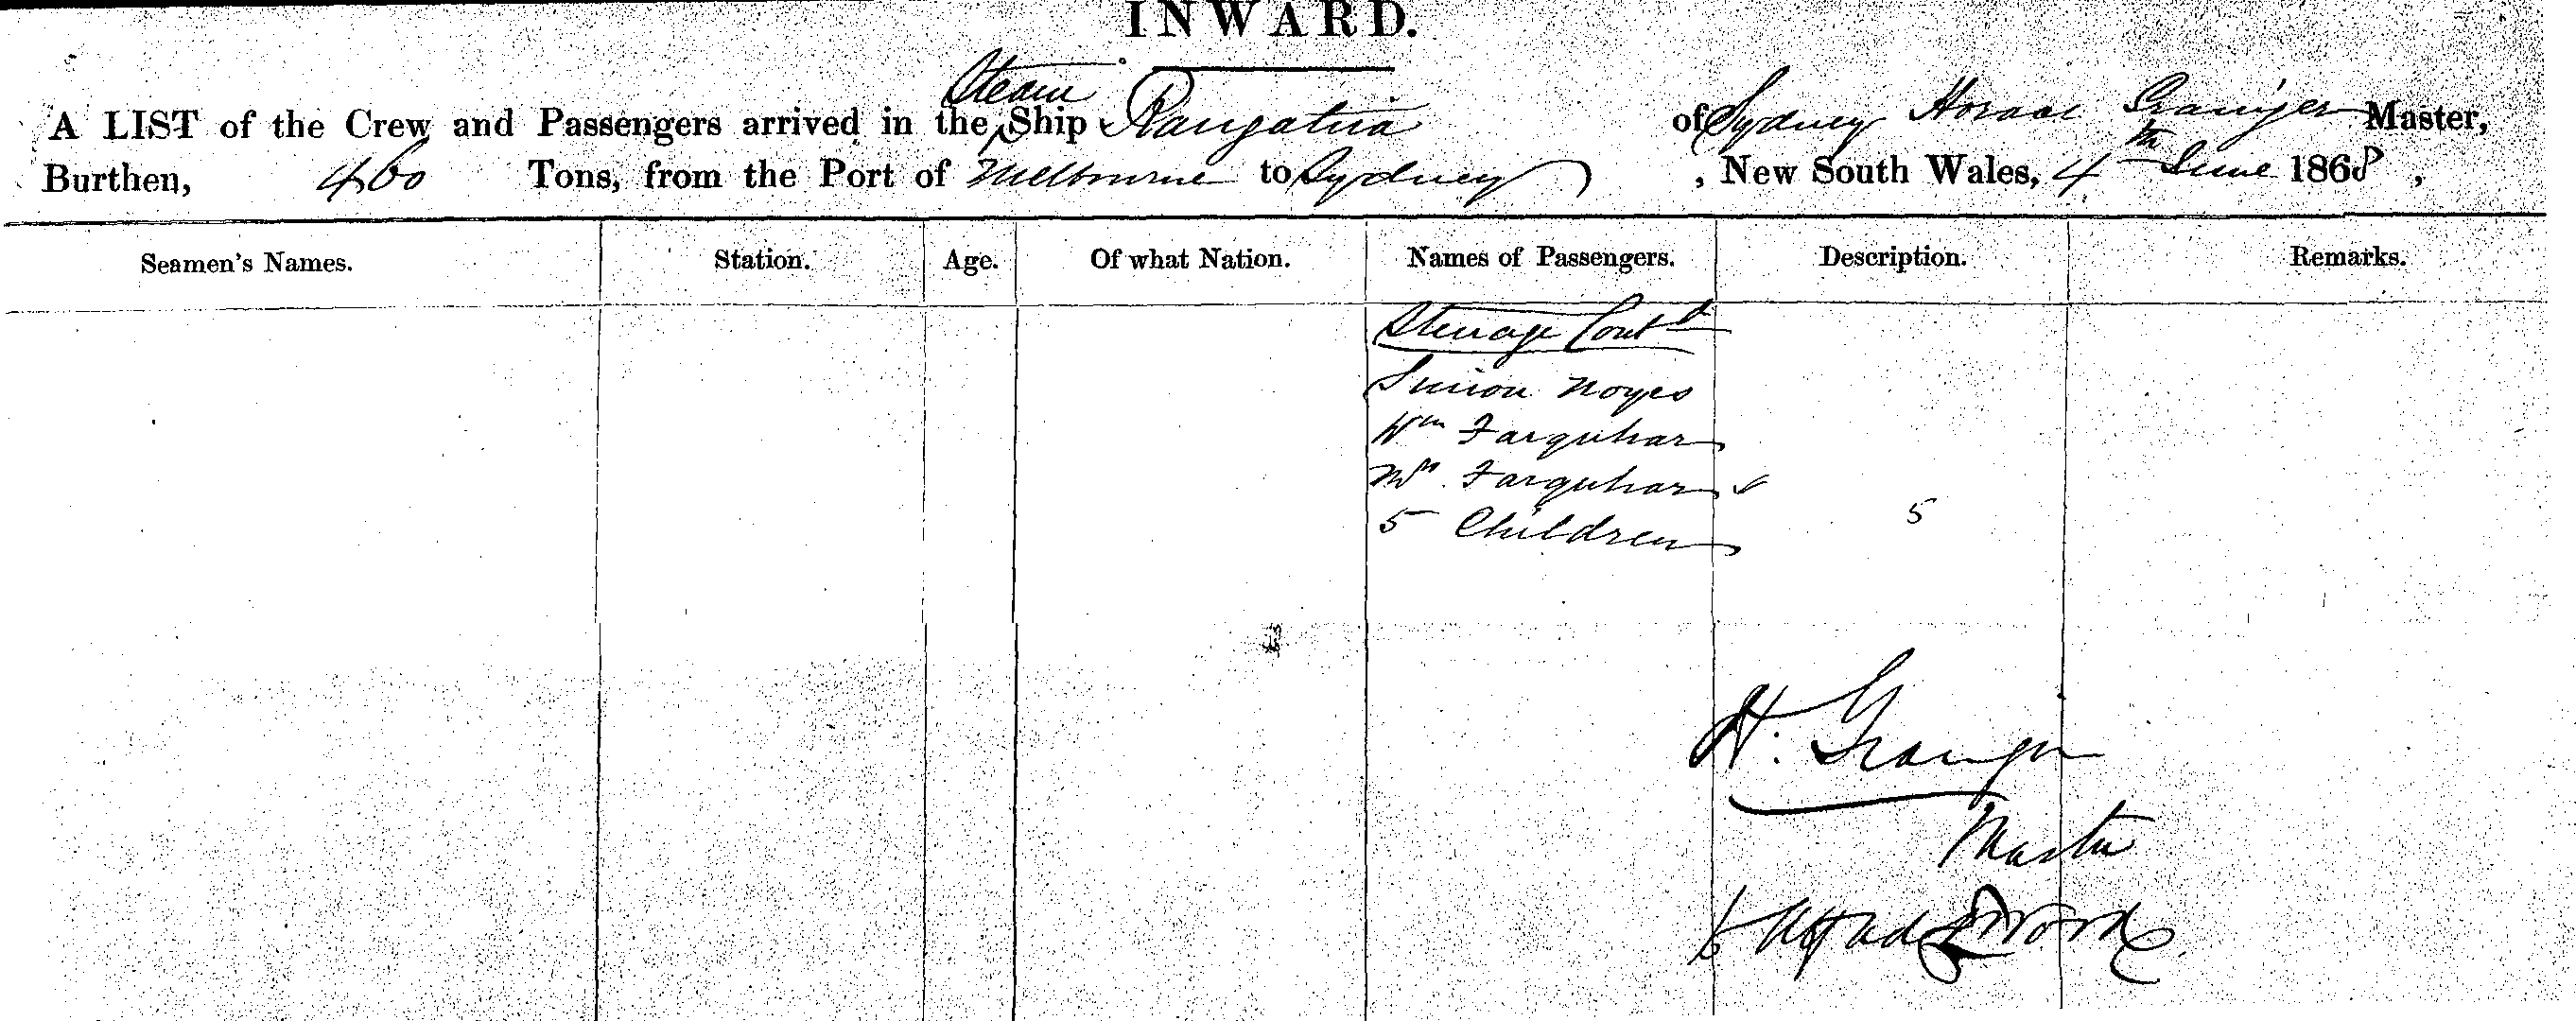 INWARD.
A LIST of the Crew and Passengers arrived in the Steam Ship Rangatira of Sydney Horace Grainger Master,
Burthen, 460 Tons, from the Port of Melbourne to Sydney, New South Wales, 4th June 1868,
Seamen's Names. Station. Age. Of what Nation. Names of Passengers. Description. Remarks.
Steerage Contd
Simion Noyes
Wm Farquhar
Mrs Farquhar
5 Children 5
H. Grainger
Master